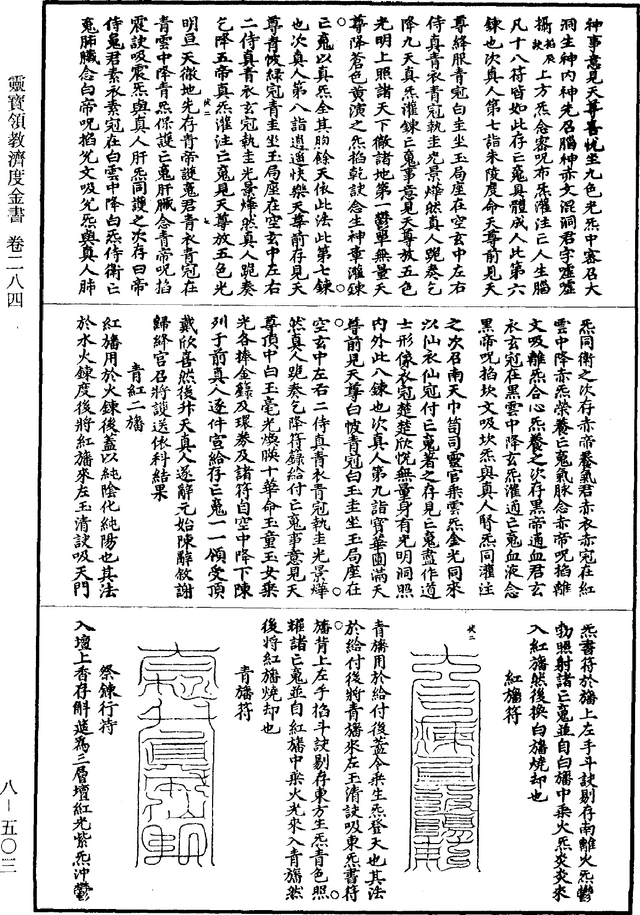 靈寶領教濟度金書 卷二八四
八－五〇三
神事意見天尊喜悅坐九色光炁中密召大
洞生神內神先召腦神赤文混洞君字虛虛
攝於辰訣上方炁念密呪布炁灌注亡人生腦
凡十八符皆如此存亡䰟具體成人此第六
鍊也次真人第七詣朱陵度命天尊前見天
尊絳服青冠白圭坐玉局座在空玄中左右
侍真青衣青冠執圭光景燁然真人跪奏乞
降九天真炁灌鍊亡䰟事意見天尊放五色
光明上照諸天下徹諸地第一鬱單無量天
尊降蒼色黃演之炁掐乾訣念生神章灌鍊
亡䰟以真炁全其胞餘天依此法此第七鍊
也次真人第八詣逍遙快樂天尊前存見天
尊青帔綠冠青圭坐玉局座在空玄中左右
二侍真青衣玄冠執圭光景燁然真人跪奏
乞降五帝真炁灌注亡䰟見天尊放五色光
明亘天徹地先存青帝護䰟君青衣青冠在
青雲中降青炁保護亡䰟肝臟念青帝呪掐
震訣吸震炁與真人肝炁同護之次存白帝
侍䰟君素衣素冠在白雲中降白炁侍衛亡
䰟肺臟念白帝呪掐兌文吸兌炁與真人肺
炁同衛之次存赤帝養氣君赤衣赤冠在紅
雲中降赤炁榮養亡䰟氣脉念赤帝呪掐離
文吸離炁合心炁養之次存黑帝通血君玄
衣玄冠在黑雲中降玄炁灌通亡䰟血液念
黑帝呪掐坎文吸坎炁與真人腎炁同灌注
之次召南天巾笥司靈官乘雲炁金光同來
以仙衣仙冠付亡䰟著之存見亡䰟盡作道
士形像衣冠楚楚欣悅無量身有光明洞照
內外此八鍊也次真人第九詣寶華圓滿天
尊前見天尊白帔青冠白玉圭坐玉局座在
空玄中左右二侍真青衣青冠執圭光景燁
然真人跪奏乞降符籙給付亡䰟事意見天
尊頂中白玉毫光煥暎十華命玉童玉女乘
光各捧金籙及環券及諸符自空中降下陳
列于前真人逐件宣給存亡䰟一一領受頂
戴欣喜然後升天真人遂辭元始陳辭欽謝
歸絳宮召將談送依科結果
青紅二旛
紅旛用於火鍊後蓋以純陰化純陽也其法
於水火鍊度後將紅旛來左玉清訣吸天門
炁書符於旛上左手斗訣剔存南離火炁鬱
勃照射諸亡䰟並自白旛中乘火炁炎炎來
入紅旛然後換白旛燒却也
紅旛符
青旛用於給付後蓋令乘生炁登天也其法
於給付後將青旛來左玉清訣吸東炁書符
旛背上左手掐斗訣剔存東方生炁青色照
耀諸亡䰟並自紅旛中乘火光來入青旛然
後將紅旛燒却也
青旛符
祭鍊行符
入壇上香存斛筵為三層壇紅光紫炁沖鬱